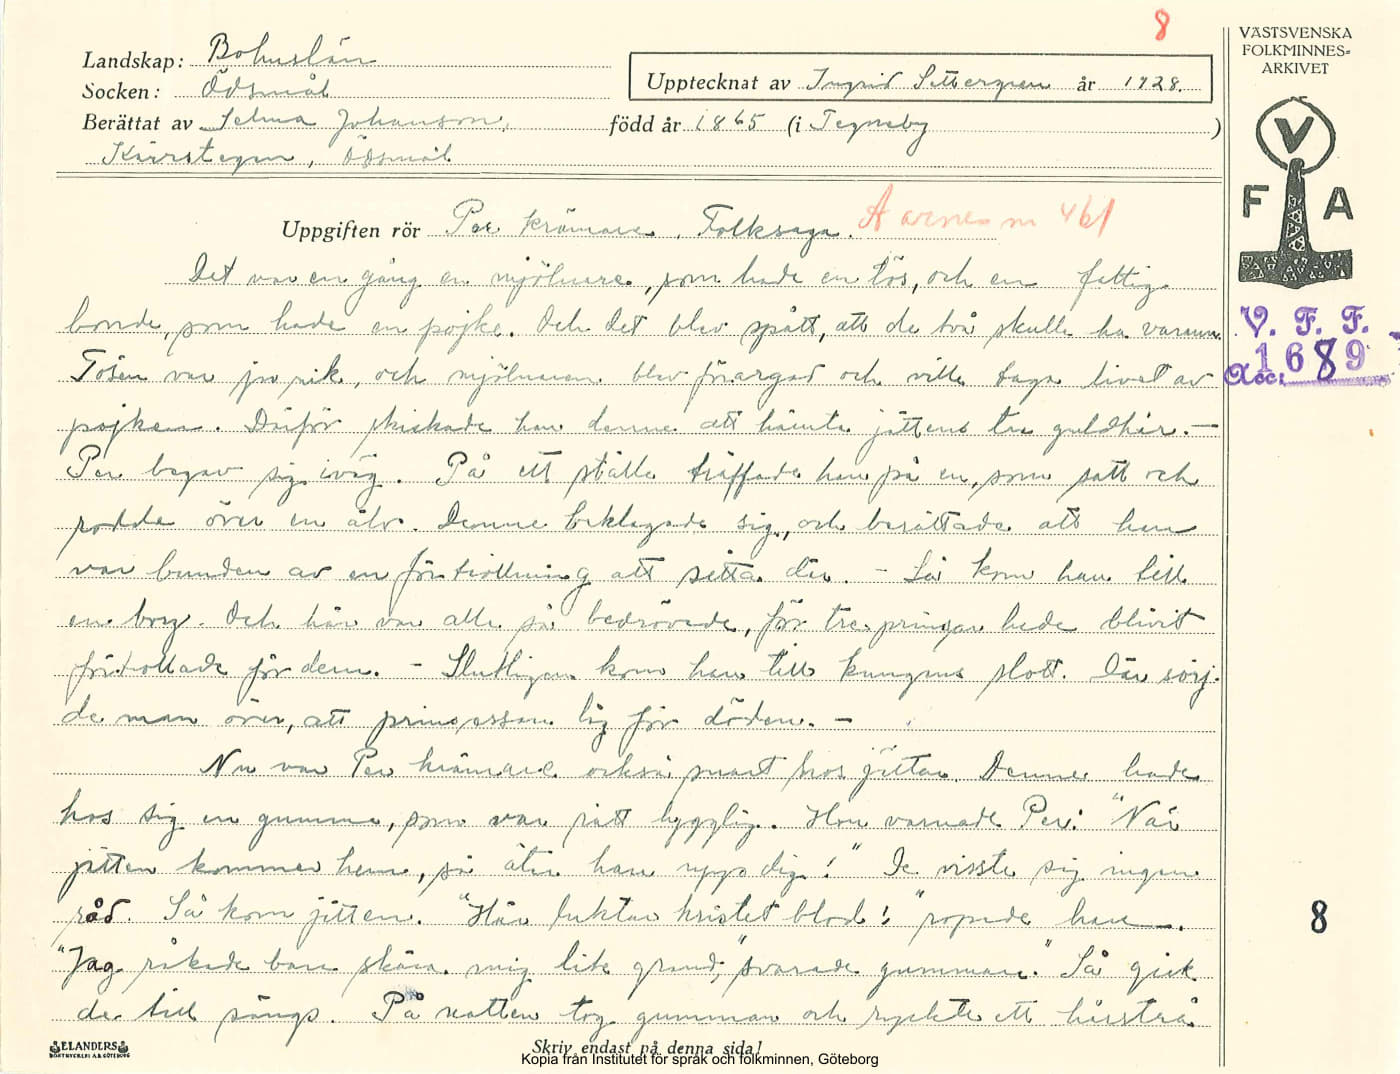 8
VÄSTSVENSKA
FOLKMINNES=
ARKIVET
Landskap: Bohuslän
Socken: Ödsmål
Upptecknat av Ingrid Settergren år 1928.
Berättat av Selma Johanson, född år 1865 (i Tegneby )
Kärrstegen, Ödsmål
V
F A
Uppgiften rör Per krämare. Folksaga. Aarne nr 461
Det var en gång en mjölnare, som hade en tös, och en fattig
bonde, som hade en pojke. Och det blev spått, att de två skulle ha varann.
Tösen var ju rik, och mjölnaren blev förargad och ville taga livet av
pojken. Därför skickade han denne att hämta jättens tre guldhår. —
Per begav sig iväg. På ett ställe träffade han på en, som satt och
rodde över en älv. Denne beklagade sig, och berättade att han
var bunden av en förtrollning att sitta där. - Så kom han till
en borg. Och här var alla så bedrövade, för tre prinsar hade blivit
förtrollade för dem. - Slutligen kom han till kungens slott. Där sörj-
de man över, att prinsessan låg för döden. —
Nu var Per krämare också snart hos jätten. Denne hade
hos sig en gumma, som var rätt hygglig. Hon varnade Per: "När
jätten kommer hem, så äter han upp dig!" De visste sig ingen
råd. Så kom jätten. "Här luktar kristet blod!" ropade han.
"Jag råkade bara skära mig lite grand," svarade gumman." Så gick
de till sängs. På natten tog gumman och ryckte ett hårstrå
V. F. F.
Acc. 1689
8
ELANDERS
BOKTRYCKERI A.B. GÖTEBORG
Skriv endast på denna sida!
Kopia från Institutet för språk och folkminnen, Göteborg